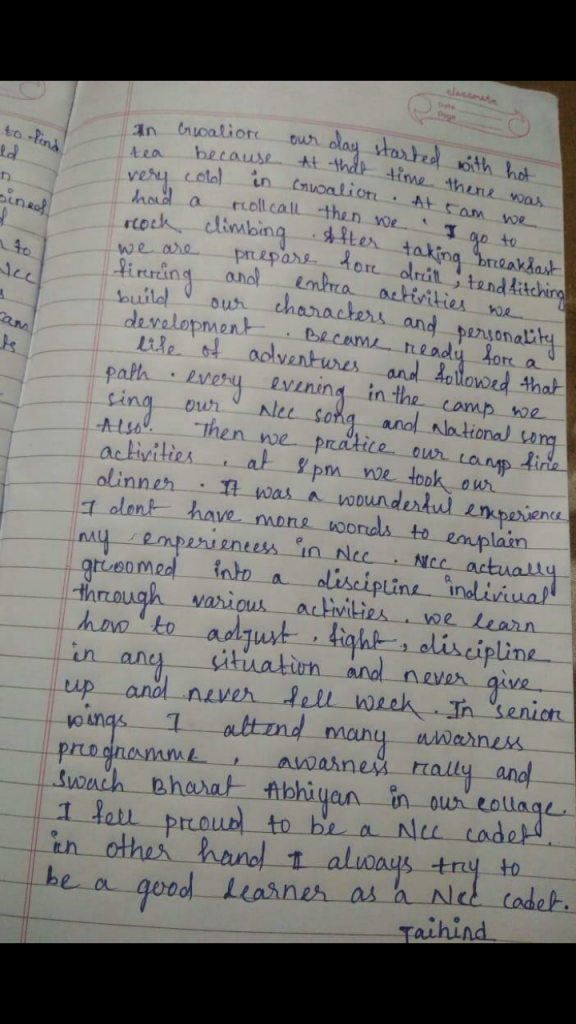 to find
ed
n
oined
f
n to
Ncc
s
cam
ts
classmate
Date
Page
In Gwalior our day started with hot
tea because At that time there was
very cold in Gwalior. At 5am we
had a rollcall then we. I go to
rock climbing. After taking breakfast
we are prepare for drill, tendfitching
firring and entra activities we
build our characters and personality
development. Became ready for a
life of adventures and followed that
path. every evening in the camp we
sing our Ncc song and National song
Also. Then we pratice our camp fire
activities. at 8pm we took our
dinner. It was a wounderful emperience
I dont have more words to emplain
my emperiencess in Ncc. Ncc actually
groomed into a discipline indiviual
through various activities. we learn
how to adjust. fight, discipline
in any situation and never give
up and never fell week. In senior
wings I attend many awarness
programme, awarness rally and
Swach Bharat Abhiyan in our collage.
I fell proud to be a Ncc cadet.
in other hand I always try to
be a good learner as a Ncc cadet.
Jaihind